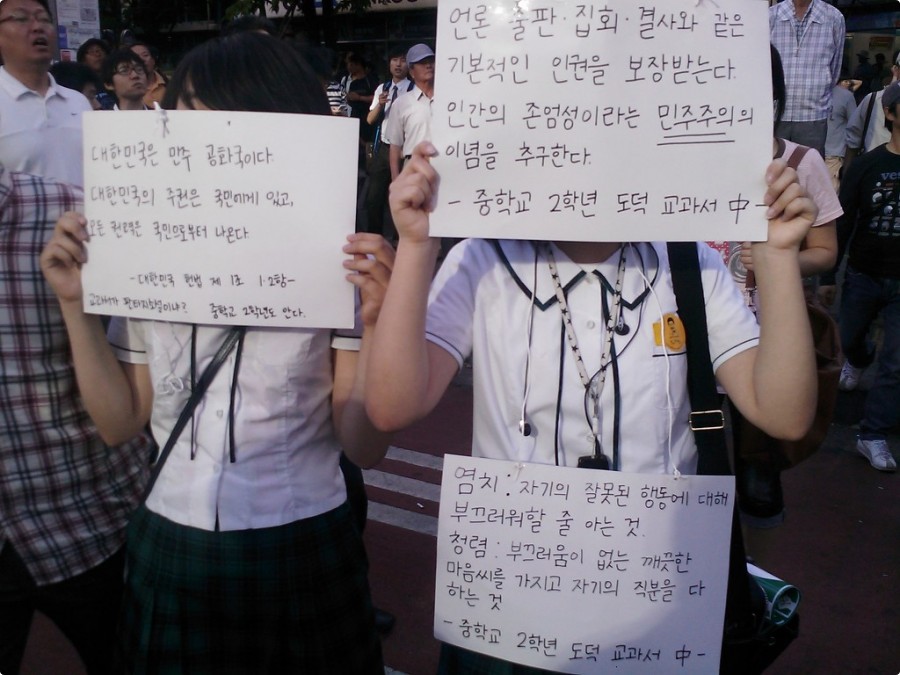 대한민국은 민주 공화국이다.
대한민국의 주권은 국민에게 있고,
모든 권력은 국민으로부터 나온다.
-대한민국 헌법 제 1조 1·2항-
교과서가 판타지소설이냐? 중학교 2학년도 안다.
언론·출판·집회·결사와 같은
기본적인 인권을 보장받는다.
인간의 존엄성이라는 민주주의의
이념을 추구한다.
- 중학교 2학년 도덕 교과서 中 -
염치 : 자기의 잘못된 행동에 대해
부끄러워할 줄 아는 것.
청렴 : 부끄러움이 없는 깨끗한
마음씨를 가지고 자기의 직분을 다
하는 것
- 중학교 2학년 도덕 교과서 中 -